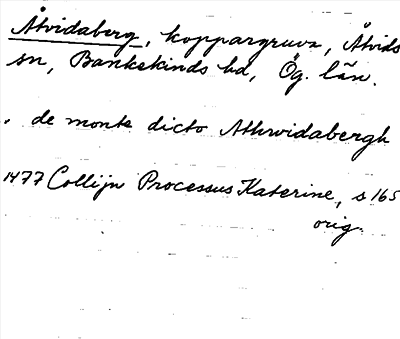 Åtvidaberg, koppargruva, Åtvids
sn, Bankekinds hd, Ög. län.
. de monte dicto Athwidabergh
1477 Collijn Processus Katerine, s 165
orig.